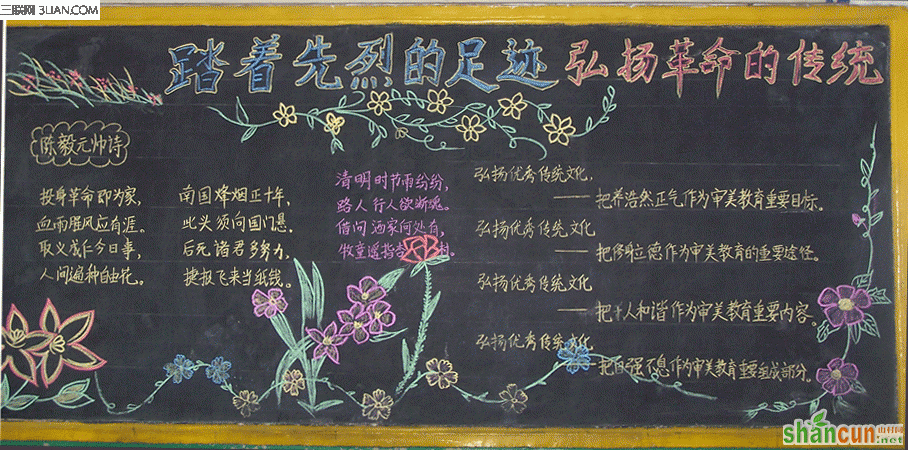 三联网 3LIAN.COM
踏着先烈的足迹 弘扬革命的传统
陈毅元帅诗
投身革命即为家,
血雨腥风应有涯。
取义成仁今日事,
人间遍种自由花。
南国烽烟正十年,
此头须向国门悬。
后死诸君多努力,
捷报飞来当纸钱。
清明时节雨纷纷,
路人行人欲断魂。
借问酒家何处有,
牧童遥指杏 村
弘扬优秀传统文化,
——把养浩然正气作为审美教育重要目标。
弘扬优秀传统文化
——把修 德作为审美教育的重要途径。
弘扬优秀传统文化
——把 人和谐作为审美教育重要内容。
弘扬优秀传统文化
——把自强不息作为审美教育重要组成部分。
shancun
.net